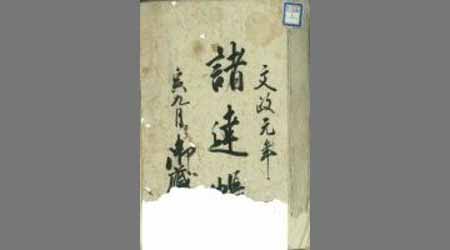 文政元年
諸達帳
寅九月
御蔵